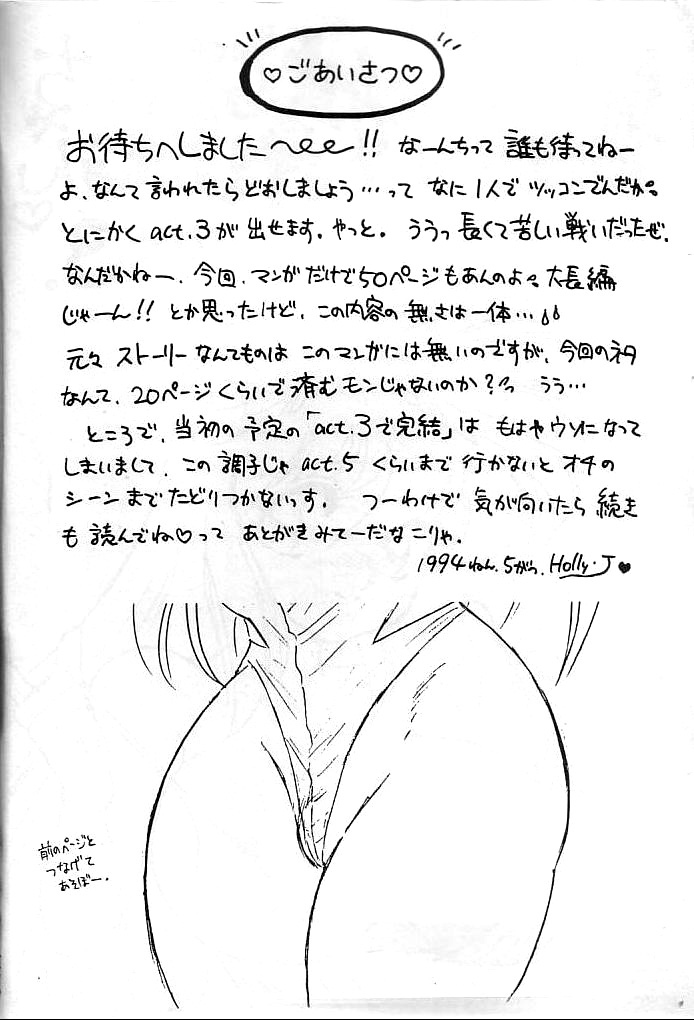 ♡ごあいさつ♡
お待ちへしました〜ee!! なーんちって 誰も待ってねー
よ、なんて言われたらどおしましょう…って なに1人で ツッコンでんだか。
とにかく act.3が 出せます。やっと。 ううっ 長くて苦しい戦いだったぜ。
なんだかねー、今回、マンガだけで50ページもあんのよ 大長編
じゃーん!! とか思ったけど、この内容の無さは一体…
元々 ストーリーなんてものは このマンガには無いのですが、今回のネタ
なんて、20ページくらいで済むモンじゃないのか? うう…
ところで、当初の予定の「act.3で完結」は もはやウソになって
しまいまして、この調子じゃ act.5 くらいまで行かないと オチの
シーンまでたどりつかないっす。 つーわけで 気が向いたら続き
も 読んでね♡って あとがきみてーだなこりゃ。
1994ねん.5がつ. Holly・J♥
前のページと
つなげて
あそぼー.